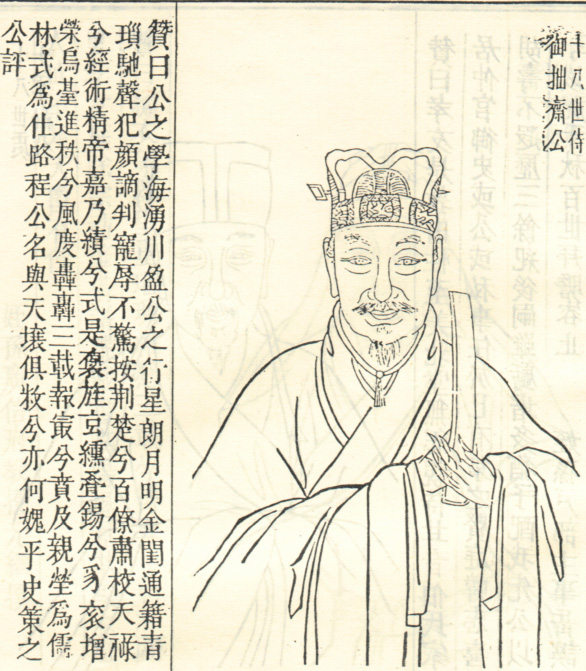 十八世侍
御拙齋公
贊曰公之學海湧川盈公之行星朗月明金閨通籍青
瑣馳聲犯顏謫判寵辱不驚按荆楚兮百僚肅校天祿
兮經術精帝嘉乃績兮式是褒旌京纁叠錫兮豸衮增
榮烏臺進秩兮風度轟轟三載報最兮賁及親塋爲儒
林式爲仕路程公名與天壤俱敝兮亦何媿乎史策之
公評